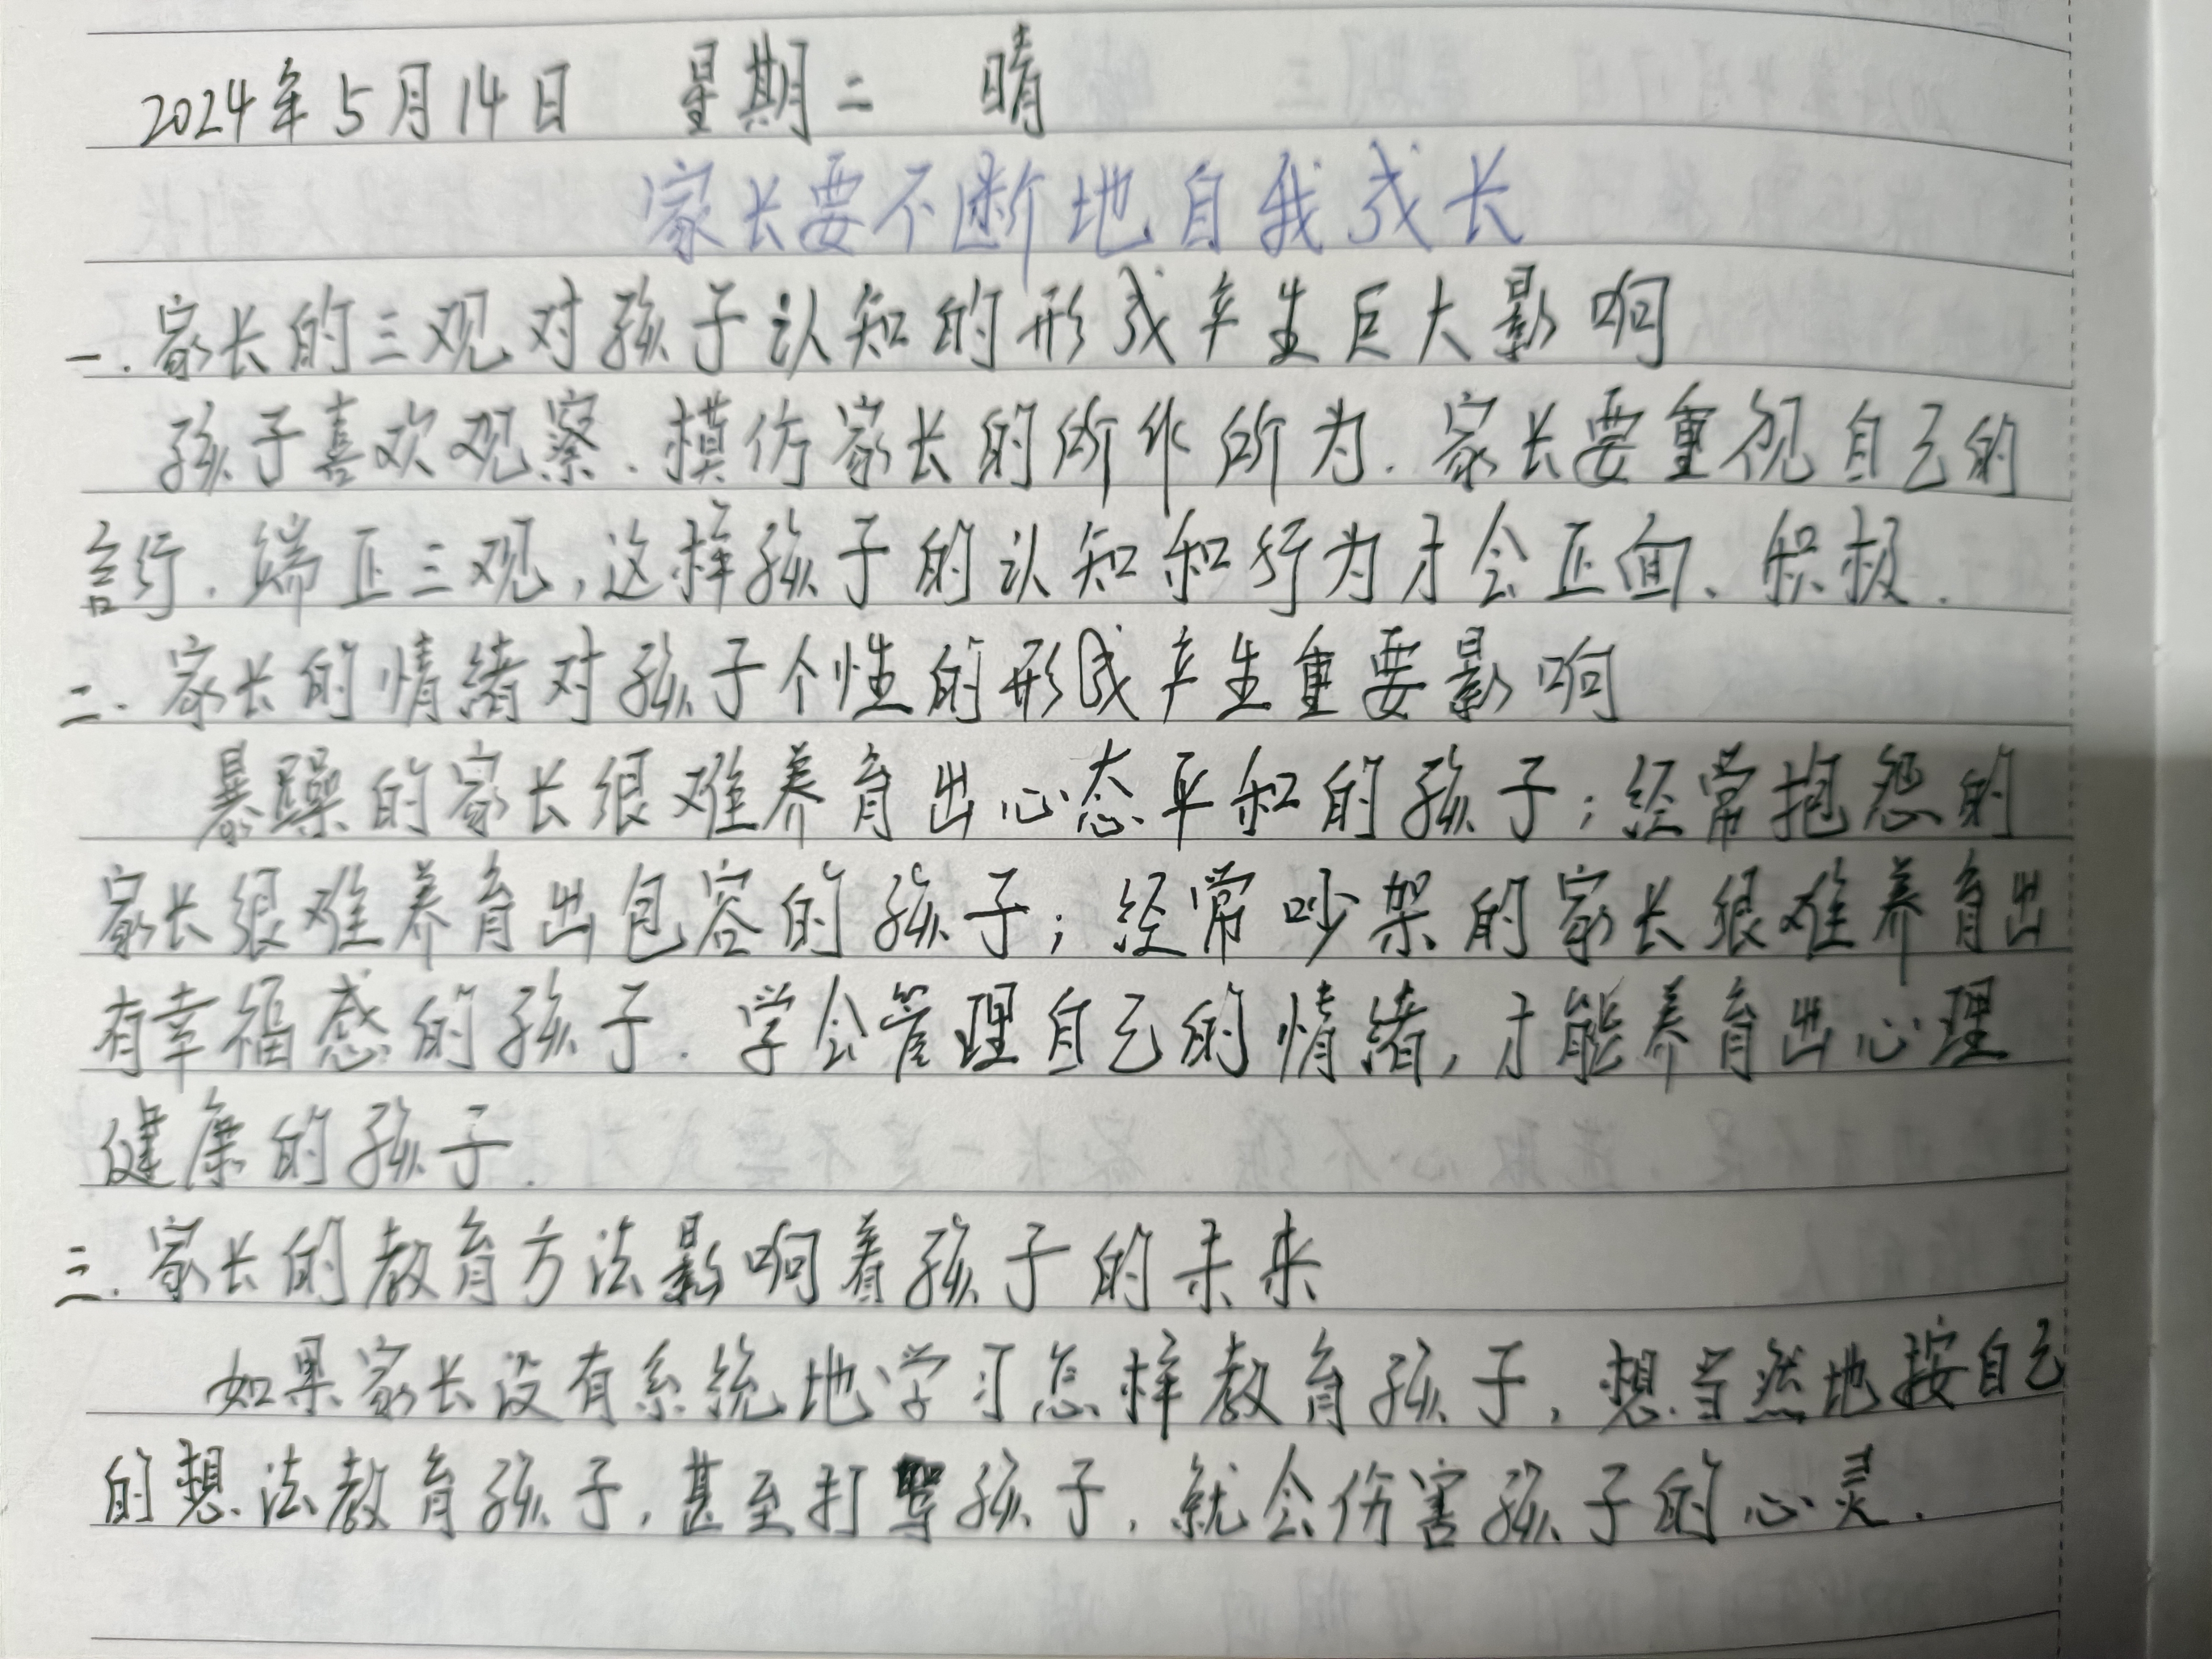 2024年5月14日 星期二 晴
家长要不断地自我成长
一.家长的三观对孩子认知的形成产生巨大影响
孩子喜欢观察.模仿家长的所作所为.家长要重视自己的
言行.端正三观,这样孩子的认知和行为才会正面、积极.
二.家长的情绪对孩子个性的形成产生重要影响
暴躁的家长很难养育出心态平和的孩子;经常抱怨的
家长很难养育出包容的孩子;经常吵架的家长很难养育出
有幸福感的孩子.学会管理自己的情绪,才能养育出心理
健康的孩子.
三.家长的教育方法影响着孩子的未来
如果家长没有系统地学习怎样教育孩子,想当然地按自己
的想法教育孩子,甚至打骂孩子,就会伤害孩子的心灵.